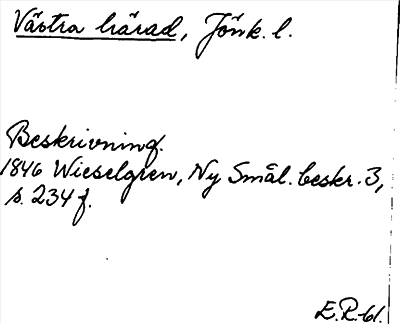 Västra härad, Jönk. l.
Beskrivning.
1846 Wieselgren, Ny Smål. beskr. 3,
s. 234 f.
E.R-bl.